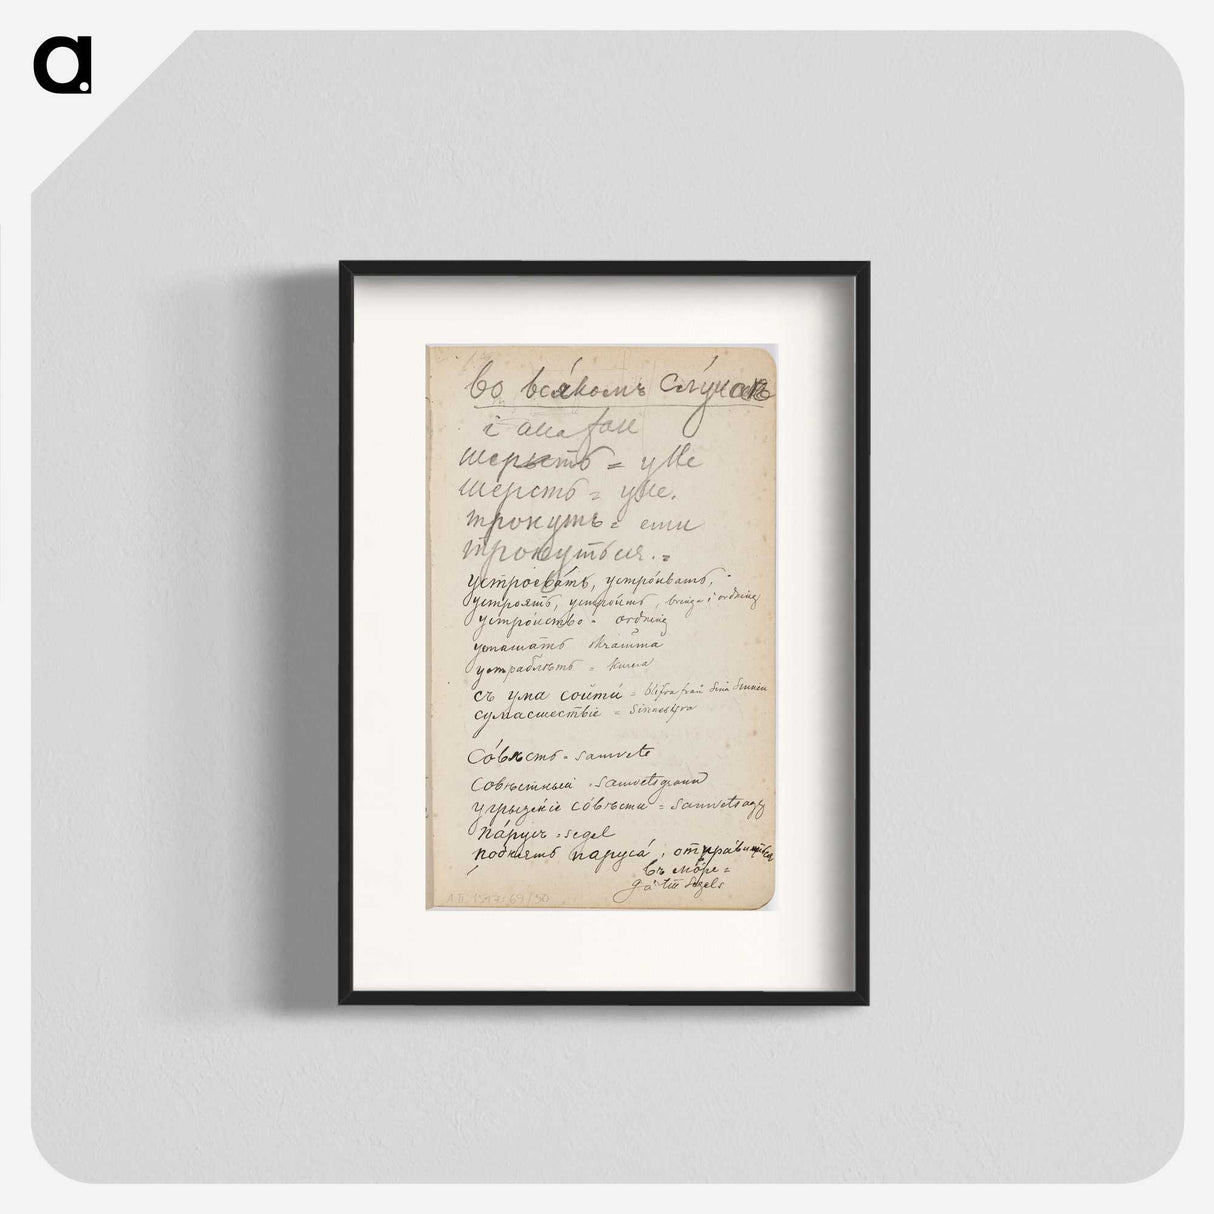 a.
во вся́комъ слу́чаѣ
i alla fall
шерсть = ylle
шерсть = ylle.
тронуть =
тронуться. =
устроева́ть, устро́ивать,
устроять, устро́ить, bringa i ordning
устро́йство = ordning
устрашать skrämma
съ ума сойти́ = blifva från sina sinnen
сумасшествіе =
Со́вѣсть = samvete
совѣстный = samvetsgrann
угрызе́ніе со́вѣсти = samvetsagg
па́русъ = segel
поднять паруса́, отпра́виться
въ мо́ре =
gå till segels